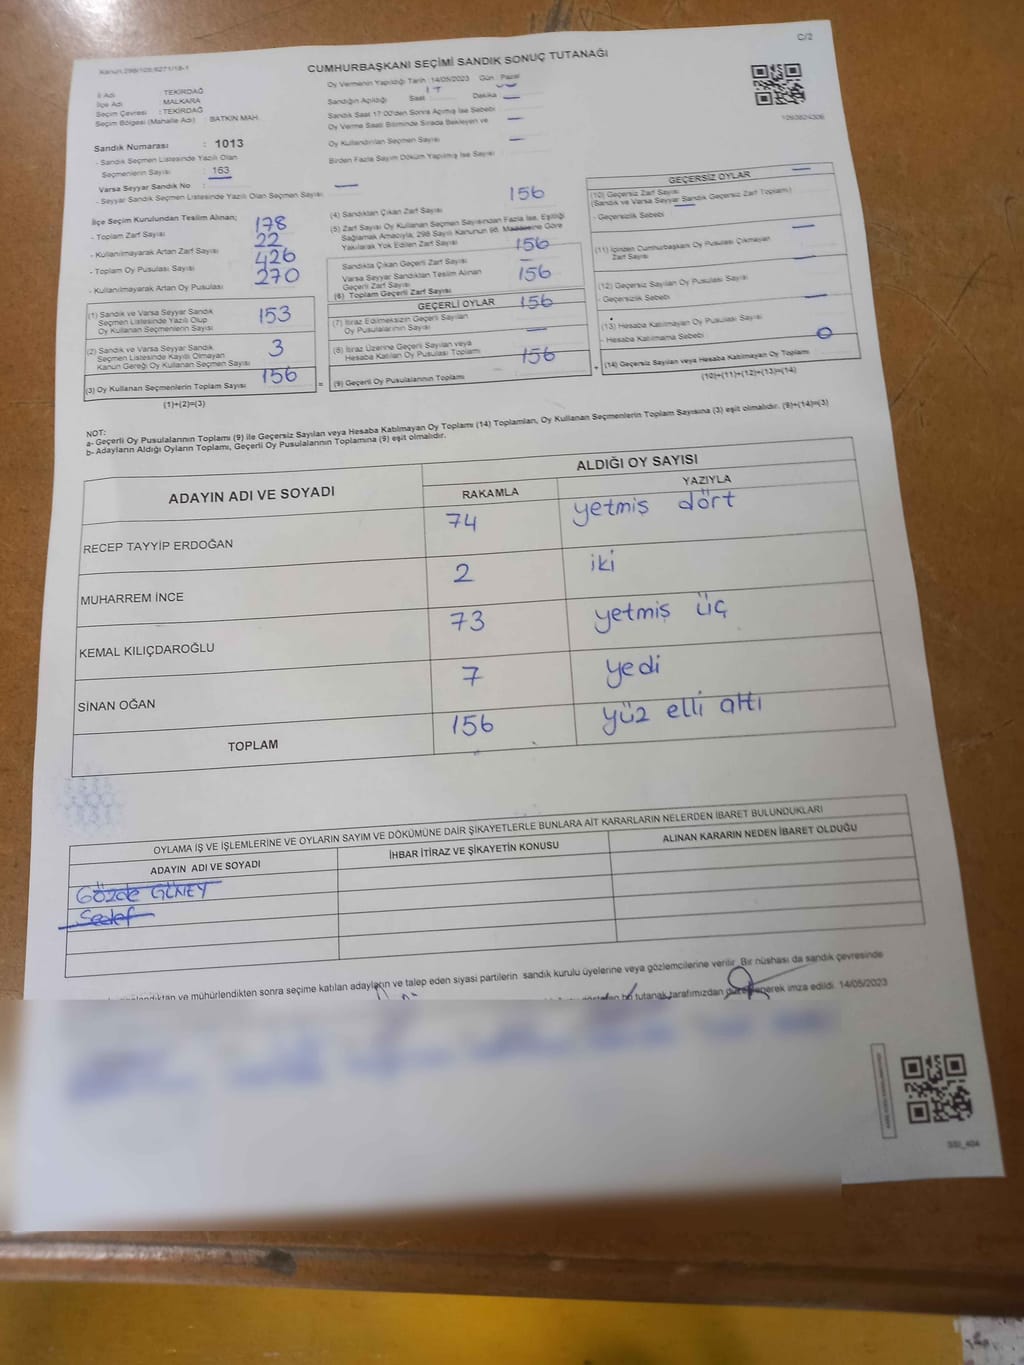 Kanun:298/105;6271/18-1
C/2
CUMHURBAŞKANI SEÇİMİ SANDIK SONUÇ TUTANAĞI
İl Adı TEKİRDAĞ
İlçe Adı MALKARA
Seçim Çevresi : TEKİRDAĞ
Seçim Bölgesi (Mahalle Adı) BATKIN MAH.
Oy Vermenin Yapıldığı Tarih : 14/05/2023 Gün : Pazar
Sandığın Açıldığı Saat 17 Dakika —
Sandık Saat 17:00'den Sonra Açılmış İse Sebebi —
Oy Verme Saati Bitiminde Sırada Bekleyen ve
Oy Kullandırılan Seçmen Sayısı —
Birden Fazla Sayım Döküm Yapılmış İse Sayısı —
Sandık Numarası : 1013
- Sandık Seçmen Listesinde Yazılı Olan
Seçmenlerin Sayısı : 163
Varsa Seyyar Sandık No : —
- Seyyar Sandık Seçmen Listesinde Yazılı Olan Seçmen Sayısı
İlçe Seçim Kurulundan Teslim Alınan;
- Toplam Zarf Sayısı 178
- Kullanılmayarak Artan Zarf Sayısı 22
- Toplam Oy Pusulası Sayısı 426
- Kullanılmayarak Artan Oy Pusulası 270
(1) Sandık ve Varsa Seyyar Sandık
Seçmen Listesinde Yazılı Olup
Oy Kullanan Seçmenlerin Sayısı 153
(2) Sandık ve Varsa Seyyar Sandık
Seçmen Listesinde Kayıtlı Olmayan
Kanun Gereği Oy Kullanan Seçmen Sayısı 3
(3) Oy Kullanan Seçmenlerin Toplam Sayısı 156
(1)+(2)=(3)
(4) Sandıktan Çıkan Zarf Sayısı 156
(5) Zarf Sayısı Oy Kullanan Seçmen Sayısından Fazla İse, Eşitliği
Sağlamak Amacıyla, 298 Sayılı Kanunun 98. Maddesine Göre
Yakılarak Yok Edilen Zarf Sayısı
Sandıkta Çıkan Geçerli Zarf Sayısı 156
Varsa Seyyar Sandıktan Teslim Alınan
Geçerli Zarf Sayısı —
(6) Toplam Geçerli Zarf Sayısı 156
GEÇERLİ OYLAR
(7) İtiraz Edilmeksizin Geçerli Sayılan
Oy Pusulalarının Sayısı 156
(8) İtiraz Üzerine Geçerli Sayılan veya
Hesaba Katılan Oy Pusulası Toplamı —
(9) Geçerli Oy Pusulalarının Toplamı 156
GEÇERSİZ OYLAR
(10) Geçersiz Zarf Sayısı
(Sandık ve Varsa Seyyar Sandık Geçersiz Zarf Toplamı) —
- Geçersizlik Sebebi
(11) İçinden Cumhurbaşkanı Oy Pusulası Çıkmayan
Zarf Sayısı —
(12) Geçersiz Sayılan Oy Pusulası Sayısı —
- Geçersizlik Sebebi
(13) Hesaba Katılmayan Oy Pusulası Sayısı —
- Hesaba Katılmama Sebebi
(14) Geçersiz Sayılan veya Hesaba Katılmayan Oy Toplamı 0
(10)+(11)+(12)+(13)=(14)
NOT:
a- Geçerli Oy Pusulalarının Toplamı (9) ile Geçersiz Sayılan veya Hesaba Katılmayan Oy Toplamı (14) Toplamları, Oy Kullanan Seçmenlerin Toplam Sayısına (3) eşit olmalıdır. (9)+(14)=(3)
b- Adayların Aldığı Oyların Toplamı, Geçerli Oy Pusulalarının Toplamına (9) eşit olmalıdır.
ADAYIN ADI VE SOYADI
ALDIĞI OY SAYISI
RAKAMLA YAZIYLA
RECEP TAYYİP ERDOĞAN 74 yetmiş dört
MUHARREM İNCE 2 iki
KEMAL KILIÇDAROĞLU 73 yetmiş üç
SİNAN OĞAN 7 yedi
TOPLAM 156 yüz elli altı
OYLAMA İŞ VE İŞLEMLERİNE VE OYLARIN SAYIM VE DÖKÜMÜNE DAİR ŞİKAYETLERLE BUNLARA AİT KARARLARIN NELERDEN İBARET BULUNDUKLARI
ADAYIN ADI VE SOYADI İHBAR İTİRAZ VE ŞİKAYETİN KONUSU ALINAN KARARIN NEDEN İBARET OLDUĞU
Gözde GÜNEY
Sedef
ve mühürlendikten sonra seçime katılan adayların ve talep eden siyasi partilerin sandık kurulu üyelerine veya gözlemcilerine verilir. Bir nüshası da sandık çevresinde
bu tutanak tarafımızdan düzenlenerek imza edildi. 14/05/2023